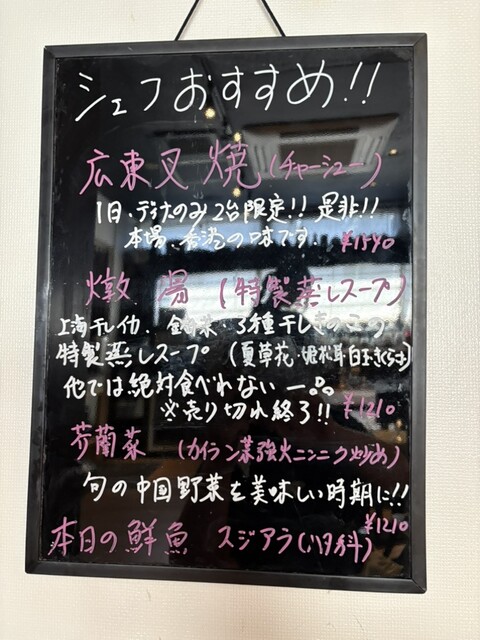 シェフおすすめ!!
広東叉焼(チャーシュー)
1日・ディナーのみ2台限定!! 是非!!
本場、香港の味です. ¥1540
燉湯 (特製蒸しスープ)
上海干しイカ、金針菜・3種干しきのこの
特製蒸しスープ (夏草花・姫松茸・白玉きくらげ)
他では絶対食べれない一品。
※売り切れ終了!! ¥1210
芥蘭菜 (カイラン菜強火ニンニク炒め)
旬の中国野菜を美味しい時期に!!
¥1210
本日の鮮魚 スジアラ(ハタ科)